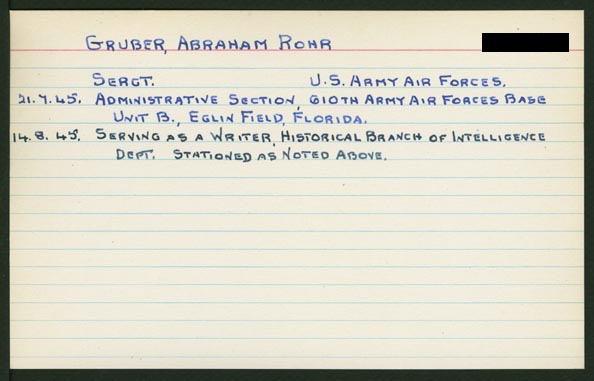 GRUBER, ABRAHAM ROHR
SERGT. U.S. ARMY AIR FORCES.
21.7.45. ADMINISTRATIVE SECTION, 610TH ARMY AIR FORCES BASE
UNIT B., EGLIN FIELD, FLORIDA.
14.8.45. SERVING AS A WRITER, HISTORICAL BRANCH OF INTELLIGENCE
DEPT. STATIONED AS NOTED ABOVE.